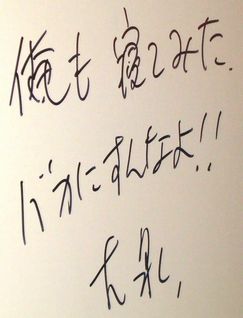 俺も寝てみた.
バカにすんなよ!!
大泉,